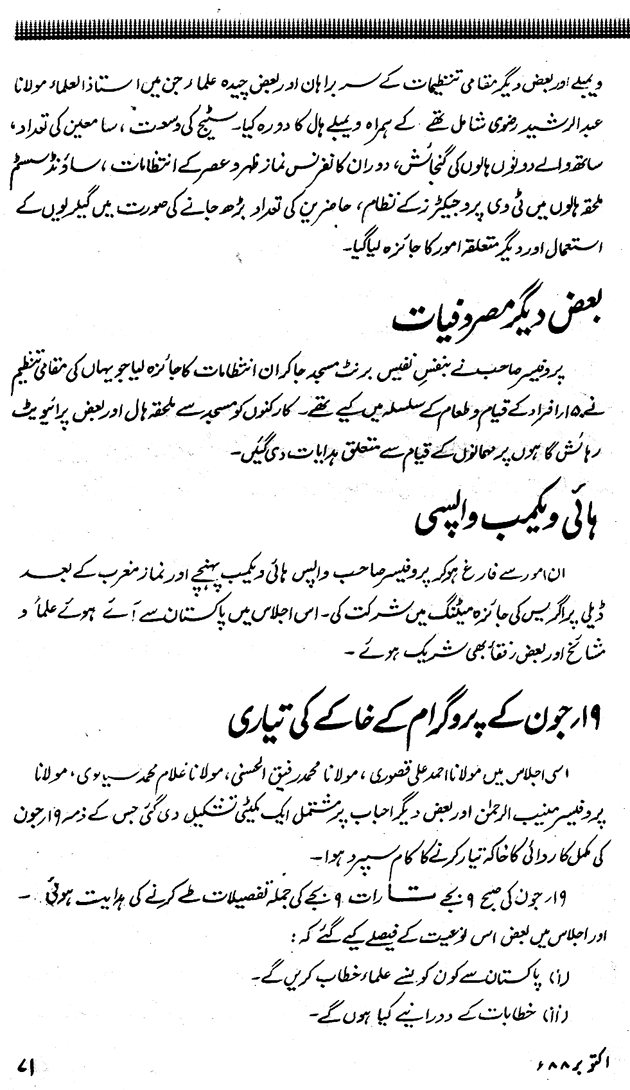 ویمبلے اور بعض دیگر مقامی تنظیمات کے سربراہان اور بعض چیدہ علماء جن میں استاذ العلماء مولانا
عبدالرشید رضوی شامل تھے کے ہمراہ ویمبلے ہال کا دورہ کیا۔ سٹیج کی وسعت، سامعین کی تعداد،
ساتھ والے دونوں ہالوں کی گنجائش، دوران کانفرنس نماز ظہر و عصر کے انتظامات، ساؤنڈ سسٹم
ملحقہ ہالوں میں ٹی وی پروجیکٹرز کے نظام، حاضرین کی تعداد بڑھ جانے کی صورت میں گیلریوں کے
استعمال اور دیگر متعلقہ امور کا جائزہ لیا گیا۔
بعض دیگر مصروفیات
پروفیسر صاحب نے بنفسِ نفیس برنٹ مسجد جا کر ان انتظامات کا جائزہ لیا جو یہاں کی مقامی تنظیم
نے ۱۵ افراد کے قیام و طعام کے سلسلہ میں کیے تھے۔ کارکنوں کو مسجد سے ملحقہ ہال اور بعض پرائیویٹ
رہائش گاہوں پر مہمانوں کے قیام سے متعلق ہدایات دی گئیں۔
ہائی ویکمب واپسی
ان امور سے فارغ ہو کر پروفیسر صاحب واپس ہائی ویکمب پہنچے اور نماز مغرب کے بعد
ڈیلی پراگریس کی جائزہ میٹنگ میں شرکت کی۔ اس اجلاس میں پاکستان سے آئے ہوئے علماٗ و
مشائخ اور بعض رفقاٗ بھی شریک ہوئے۔
۱۹؍جون کے پروگرام کے خاکے کی تیاری
اسی اجلاس میں مولانا احمد علی قصوری، مولانا محمد رفیق الحسنی، مولانا غلام محمد سیالوی، مولانا
پروفیسر منیب الرحمٰن اور بعض دیگر احباب پر مشتمل ایک کمیٹی تشکیل دی گئی جس کے ذمہ ۱۹ جون
کی مکمل کارروائی کا خاکہ تیار کرنے کا کام سپرد ہوا۔
۱۹؍جون کی صبح ۹ بجے تا رات ۹ بجے کی جملہ تفصیلات طے کرنے کی ہدایت ہوئی۔
اور اجلاس میں بعض اس نوعیت کے فیصلے کیے گئے کہ:
(i) پاکستان سے کون کونسے علماٗ خطاب کریں گے۔
(ii) خطابات کے دورانیے کیا ہوں گے۔
اکتوبر ۸۸ء
۷۱